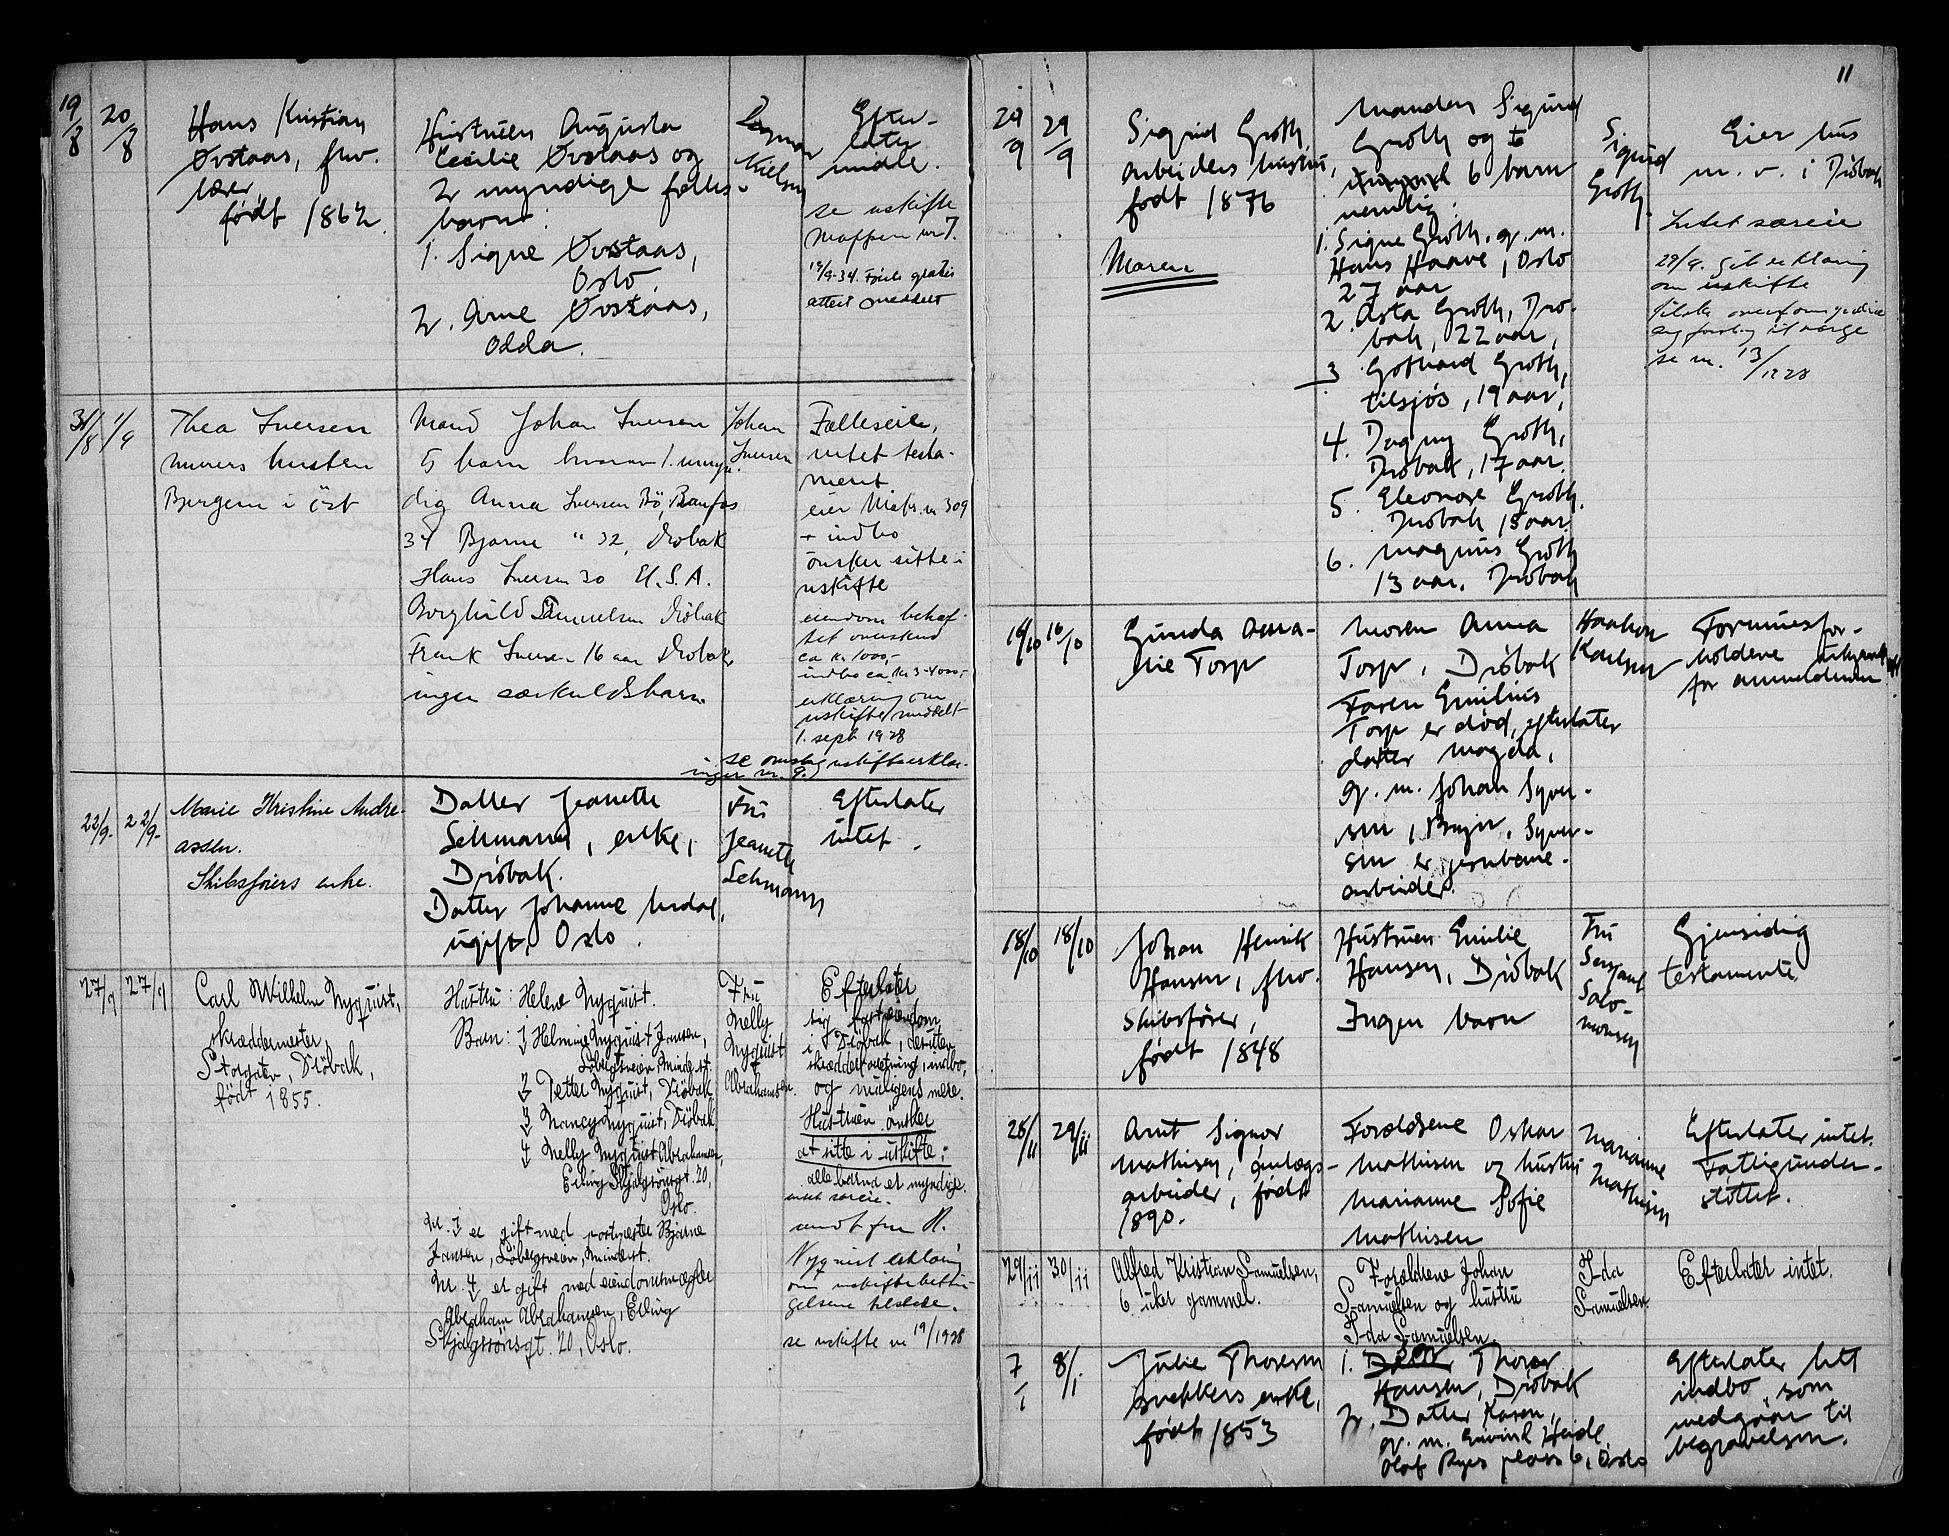 19/8
20/8
Hans Kristian
Øvstaas, fhv.
lærer
født 1862.
Hustruen Augusta
Cecilie Øvstaas og
2 myndige felles-
barn:
1. Signe Øvstaas,
Oslo
2. Arne Øvstaas,
Odda.
Nielsen
Efter-
later
midle.
se uskifte
mappen nr 7.
attest meddelt
31/8
1/9
Thea Iversen
murers hustru
Bergem i öst
Mand Johan Iversen
5 barn hvorav 1. umyn-
dig Anna Iversen Bö,
34 Bjarne " 32, Drøbak
Hans Iversen 30 U.S.A.
Borghild Samuelsen Drøbak
Frank Iversen 16 aar Drøbak
ingen særkuldsbarn
Johan
Iversen
Fælleseie,
intet testa-
ment
eier Matr. nr 309
+ indbo
ønsker sitte i
uskifte
eiendom behef-
tet
ca kr. 1000,-
indbo ca kr 3-4000,-
erklæring om
uskifte meddelt
1. sept 1928
se omslag uskifteerklæ-
ringer nr. 9.
22/9-
22/9-
Marie Kristine Andre-
assen.
Skibsførers enke.
Datter Jeanette
Lehmann, enke,
Drøbak.
Datter Johanne
ugift, Oslo.
Fru
Jeanette
Lehmann
Efterlater
intet.
27/9
27/9
Carl Wilhelm Nyquist,
skræddermester,
Storgaten, Drøbak,
født 1855.
Hustru: Helene Nyquist.
Barn: 1 Helmine Nyquist Jansen,
Solbergsveien, Mindest.
2 Petter Nyquist, Drøbak
3 Nancy Nyquist, Drøbak
4 Nelly Nyquist Abrahamsen,
Erling Skjalgsönsgt. 20,
Oslo.
Nr. 1 er gift med postmester Bjarne
Jansen, Solbergsveien, Mindest.
Nr. 4 er gift med eiendomsmægler
Abraham Abrahamsen, Erling
Skjalgssönsgt. 20, Oslo.
Fru
Nelly
Nyquist
Abrahamsen.
Efterlater
sig fast eiendom
i Drøbak, desuten
skrædderforretning, indbo,
og muligens mere.
Hustruen ønsker
at sitte i uskifte;
alle barna er myndige.
intet særeie.
sendt fru H.
Nyquist erklæring
om uskiftebevil-
gelsene tilstede.
se uskifte nr 19/1928
11
29/9
29/9
Sigrid Groth,
arbeiders hustru,
født 1876
Maren
Manden Sigurd
Groth og
6 barn
nemlig:
1. Signe Groth, g. m.
Hans Haave, Oslo
27 aar
2. Asta Groth, Drø-
bak, 22 aar,
3 Gothard Groth,
tilsjøs, 19 aar,
4. Dagny Groth,
Drøbak, 17 aar.
5. Eleonore Groth
Drøbak 15 aar
6. Magnus Groth
13 aar. Drøbak
Sigurd
Groth.
Eier hus
m. v. i Drøbak
Intet særeie
29/9. gitt erklæring
om uskifte
og forslag til værge
se nr. 13/1928
16/10
16/10
Gunda Ama-
lie Torp
Moren Anna
Torp, Drøbak
Faren Emilius
Torp er död, efterlater
datter Magda,
g. m. Johan Syver-
sen, Syver-
sen er jernbane-
arbeider.
Haakon
Karlsen
Formuesfor-
holdene ubekjendt
for anmelderen
18/10
18/10
Johan Henrik
Hansen, fhv.
skibsfører,
født 1848
Hustruen Emilie
Hansen, Drøbak
Ingen barn
Fru
Sersjant
Salo-
monsen
Gjensidig
testamente
28/11
29/11
Arnt Signor
Mathisen, anlægs-
arbeider, født
1890.
Forældrene Oskar
Mathisen og hustru
Marianne Sofie
Mathisen
Marianne
Mathisen
Efterlater intet.
Fattigunder-
støttet.
29/11
30/11
Alfred Kristian Samuelsen,
6 uker gammel.
Forældrene Johan
Samuelsen og hustru
Ida Samuelsen.
Ida
Samuelsen.
Efterlater intet.
7/1
8/1
Julie Thoresen
snekkers enke,
født 1853
1. Sön Thorer
Hansen, Drøbak
2. Datter Karen,
g. m. Eivind Heide
Olaf Ryes plass 6, Oslo
Efterlater litt
indbo som
medgaar til
begravelsen.